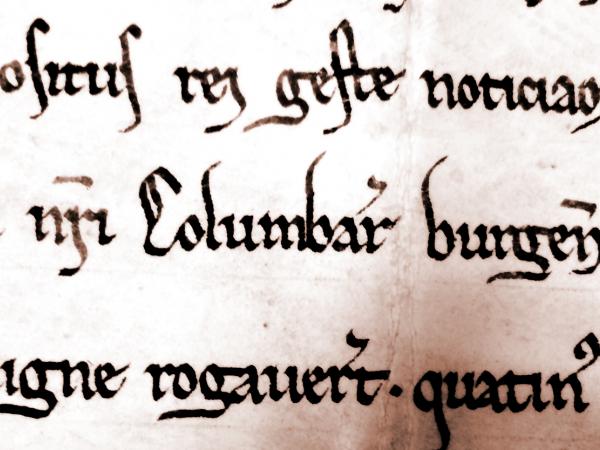 ositus rei geste noticiao
nri Columbar burgen
igne rogauert. quatin